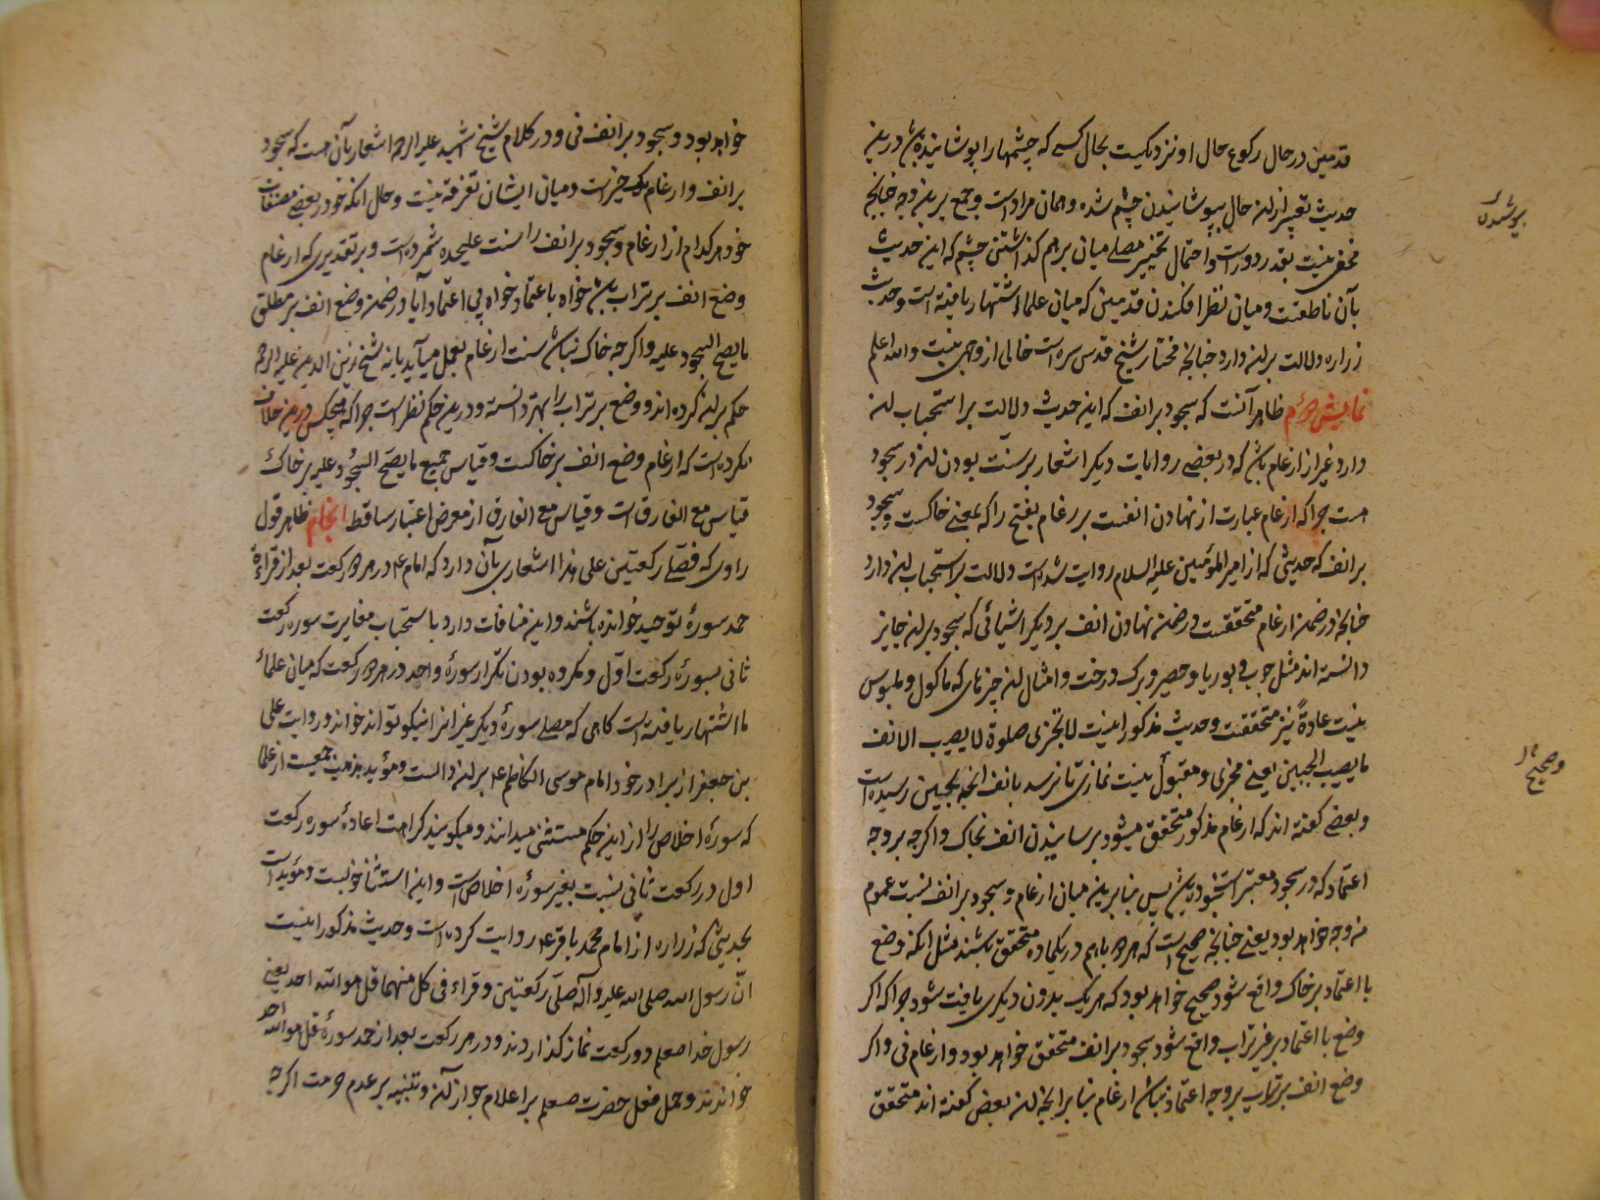 قدمین در حال رکوع حال او نزدیکست بحال کسی که چشمها را پوشانیده باشد درین
حدیث تعبیر ازین حال بپوشانیدن چشم شده و همان مراد است و جمع برین وجه چنانچه
مخفی نیست بقدر دور است و احتمال تخییر مصلی میان برهم گذاشتن چشم که این حدیث
بآن ناطقست و میان نظر افکندن قدمین که میان علما اشتهار یافته است و حدیث
زراره دلالت برین دارد چنانچه مختار شیخ قدس سره است خالی از وجهی نیست والله اعلم
نمایش دوم ظاهر آنست که سجود بر انف که این حدیث دلالت بر استحباب آن
دارد غیر از ارغام باشد که در بعضی روایات دیگر اشعار بر سنت بودن آن در سجود
هست چرا که ارغام عبارت از نهادن انفست بر رغام بفتح را که بمعنی خاکست و سجود
بر انف که حدیثی که از امیر المؤمنین علیه السلام روایت شده است دلالت بر استحباب آن دارد
چنانچه در ضمن ارغام متحققست در ضمن نهادن انف بر دیگر اشیائی که سجود بر آن جایز
دانسته اند مثل چوب و بوریا و حصیر و برک درخت و امثال آن چیزهای که ماکول و ملبوس
نیست عادة نیز متحققست و حدیث مذکور اینست لا تجزی صلوة لا یصیب الانف
ما یصیب الجبین یعنی مجزی و مقبول نیست نمازی تا نرسد بانف آنچه بجبین رسیده است
و بعضی گفته اند که ارغام مذکور متحقق میشود برسانیدن انف بخاک و اگرچه بر وجه
اعتماد که در سجود معتبر است نبوده باشد پس بنابرین میان ارغام و سجود بر انف نسبت عموم
من وجه خواهد بود یعنی چنانچه صحیح است که هر دو باهم در یکماده متحقق باشند مثل آنکه وضع
با اعتماد بر خاک واقع شود صحیح خواهد بود که هر یک بدون دیگری یافت شود چرا که اگر
وضع با اعتماد بر غیر تراب واقع شود سجود بر انف متحقق خواهد بود و ارغام نی و اگر
وضع انف بر تراب بر وجه اعتماد نباشد ارغام بنا بر آنچه آن بعض گفته اند متحقق
پوشیدن
و صحیح
خواهد بود و سجود بر انف نی و در کلام شیخ شهید علیه الرحمه اشعار بآن هست که سجود
بر انف و ارغام یک چیز است و میان ایشان تفرقه نیست و حال آنکه خود در بعضی مصنفات
خود هر کدام از ارغام و سجود بر انف را سنت علیحده شمرده است و بر تقدیری که ارغام
وضع انف بر تراب باشد خواه با اعتماد خواه بی اعتماد آیا در ضمن وضع انف بر مطلق
ما یصح السجود علیه و اگرچه خاک نباشد سنت ارغام بعمل میآید یا نه شیخ زین الدین علیه الرحمه
حکم برین کرده اند و وضع بر تراب را بهتر دانسته و درین حکم نظر است چرا که هیچکس درین خلاف
نکرده است که ارغام وضع انف بر خاکست و قیاس جمیع ما یصح السجود علیه بر خاک
قیاس مع الفارق است و قیاس مع الفارق از معرض اعتبار ساقط انجام ظاهر قول
راوی که فصلی رکعتین علی هذا اشعاری بآن دارد که امام ع در هر دو رکعت بعد از قراءة
حمد سورهٔ توحید خوانده باشند و این منافات دارد با استحباب مغایرت سوره رکعت
ثانی بسورهٔ رکعت اول و مکروه بودن تکرار سورهٔ واحد در هر دو رکعت که میان علمای
ما اشتهار یافته است گاهی که مصلی سورهٔ دیگر غیر آنرا نیکو تواند خواند و روایت علی
بن جعفر از برادر خود امام موسی الکاظم ع بر آن دالست و مؤید مذهب جمعیست از علما
که سورهٔ اخلاص را ازین حکم مستثنی میدانند و میگویند کراهت اعادهٔ سوره رکعت
اول در رکعت ثانی نسبت بغیر سورهٔ اخلاص است و این استثنا خوبست و مؤید است
بحدیثی که زراره از امام محمد باقر ع روایت کرده است و حدیث مذکور اینست
ان رسول الله صلی الله علیه و آله صلی رکعتین و قرء فی کل منهما قل هو الله احد یعنی
رسول خدا صعلم دو رکعت نماز گذاردند و در هر رکعت بعد از حمد سورهٔ قل هو الله احد
خواندند و حمل فعل حضرت صعلم بر اعلام جواز آن و تنبیه بر عدم حرمت اگرچه